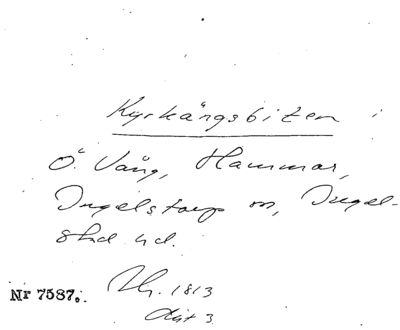 Kyrkängsbiten
Ö. Vång, Hammar,
Ingelstorp sn, Ingel-
stad hd.
Nr 7587. 1813
akt 3